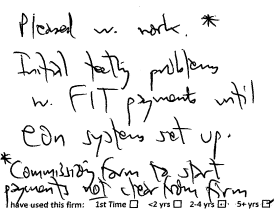 Pleased w. work. *
Initial teething problems
w. FIT payments until
eon systems set up.
*Commission form to start
payments not clear from firm
have used this firm: 1st Time <2 yrs 2-4 yrs 5+ yrs